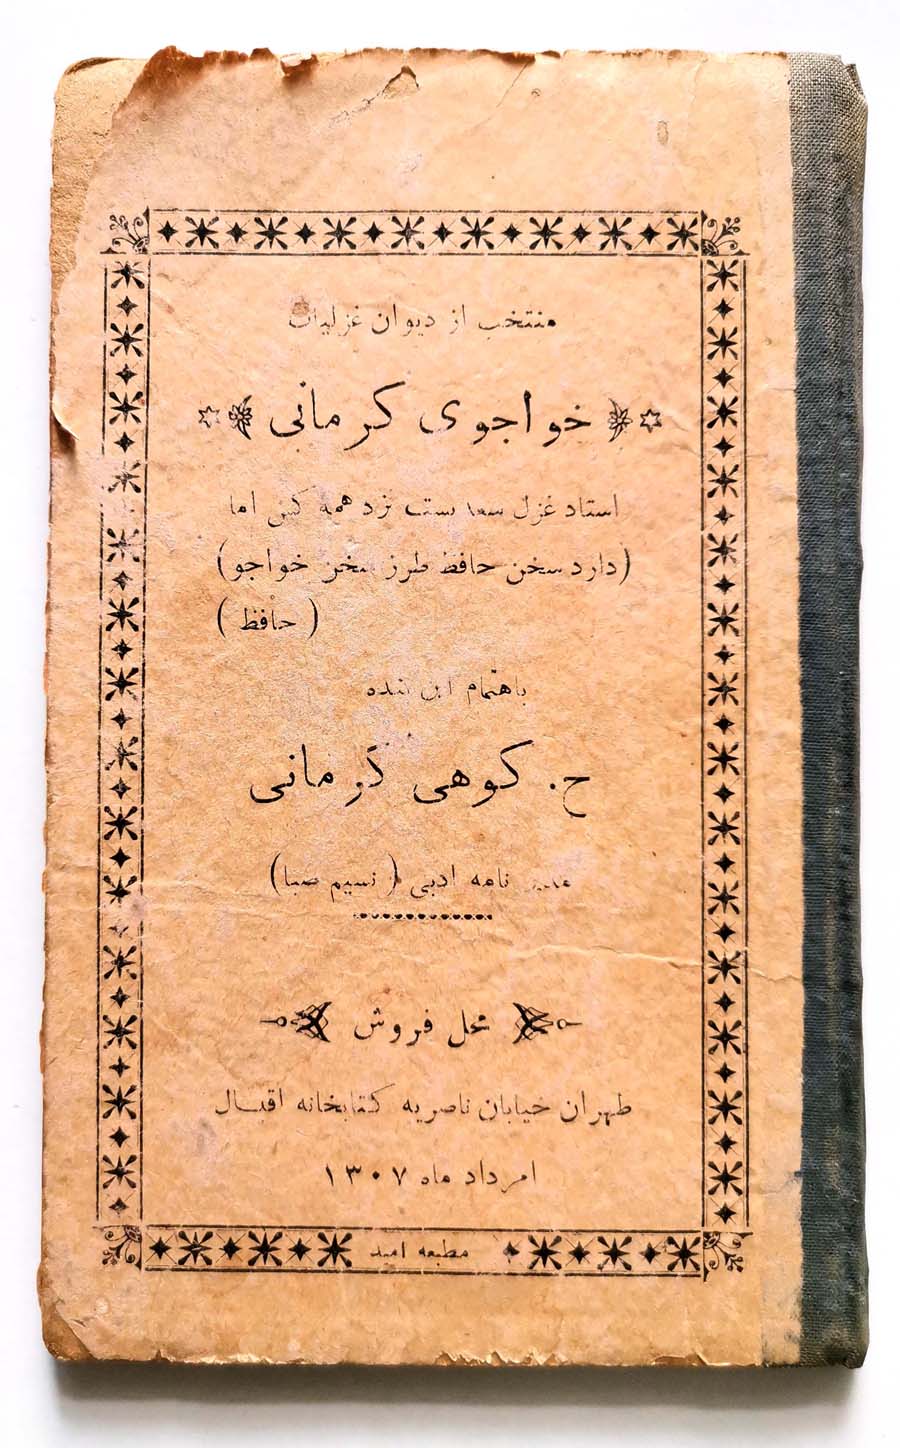 منتخب از دیوان غزلیات
خواجوی کرمانی
استاد غزل سعدیست نزد همه کس اما
(دارد سخن حافظ طرز سخن خواجو)
(حافظ)
باهتمام این بنده
ح. کوهی کرمانی
نامه ادبی (نسیم صبا)
محل فروش
طهران خیابان ناصریه کتابخانه اقبال
امرداد ماه ۱۳۰۷
مطبعه امید